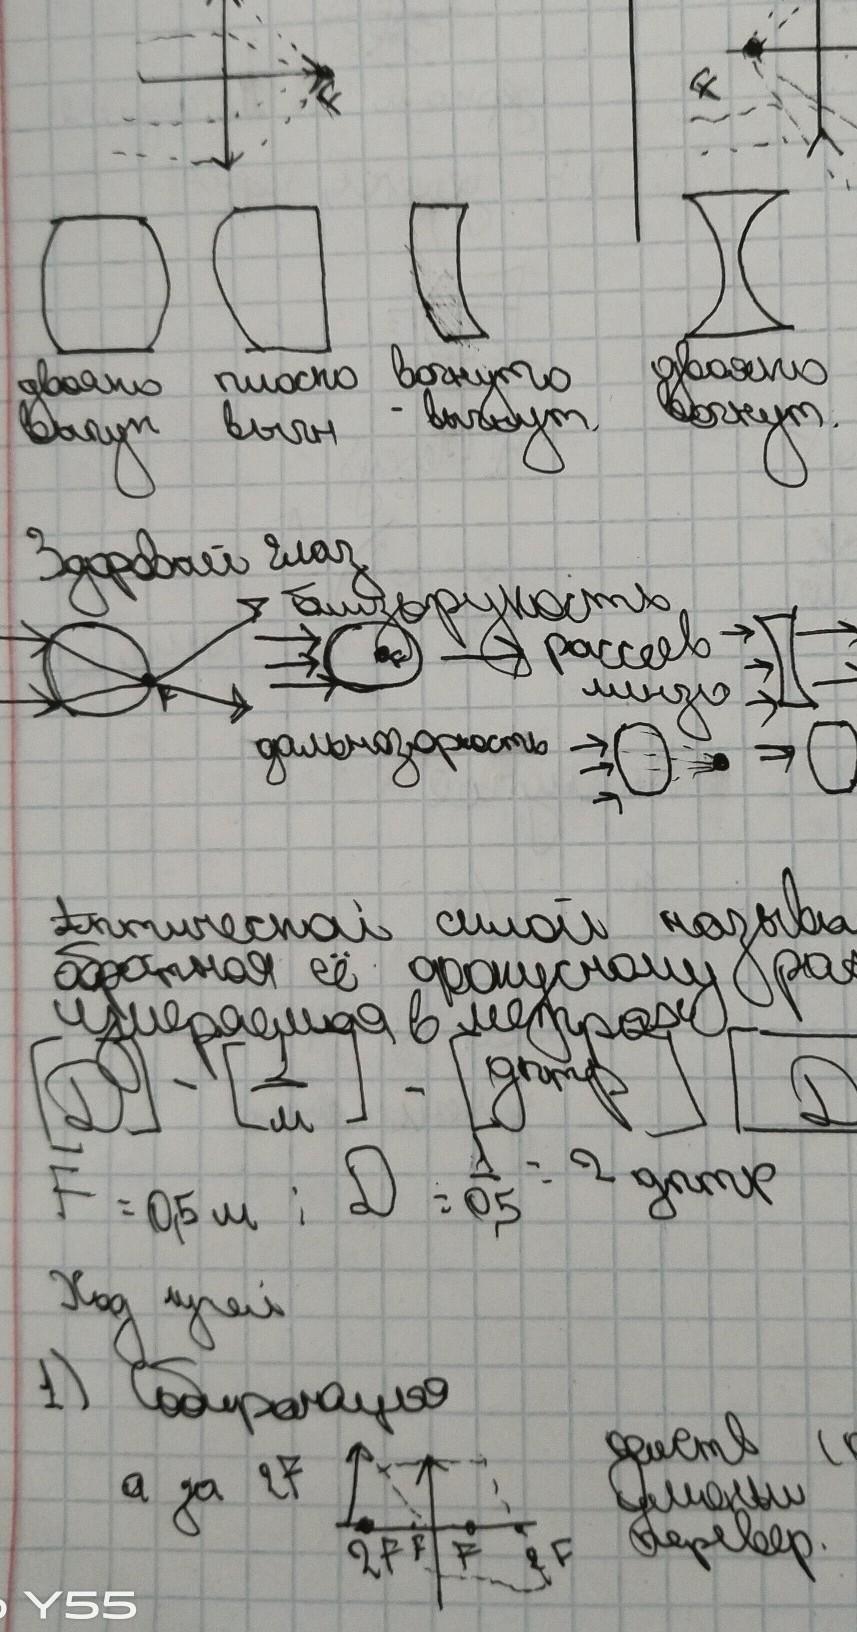 F
F
двояко плоско вогнуто двояко
выпук выпн - выпкут. вогнут.
Здоровый глаз
близорукость
F
F
рассеев
линзы
дальнозоркость
Оптической силой называ
обратная её фокусному рас
измеряемая в метрах
[D] - [1/м] - [дптр] [D
F = 0,5 м ; D = 1/0,5 = 2 дптр
Ход лучей
1) Собирающая
а за 2F
2F F F 2F
действ (
уменьш
перевер.
Y55